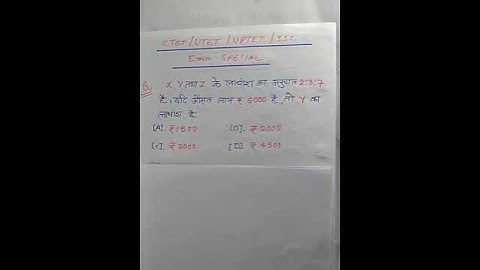 CTET/UTET/UPTET/SSC
Exam SPECIAL
Q. X, Y तथा Z के लाभांश का अनुपात 2:3:7
है। यदि औसत लाभ ₹ 6000 है, तो Y का
लाभांश है
[A]. ₹1500 [B]. ₹2000
[C]. ₹3000 [D]. ₹4500